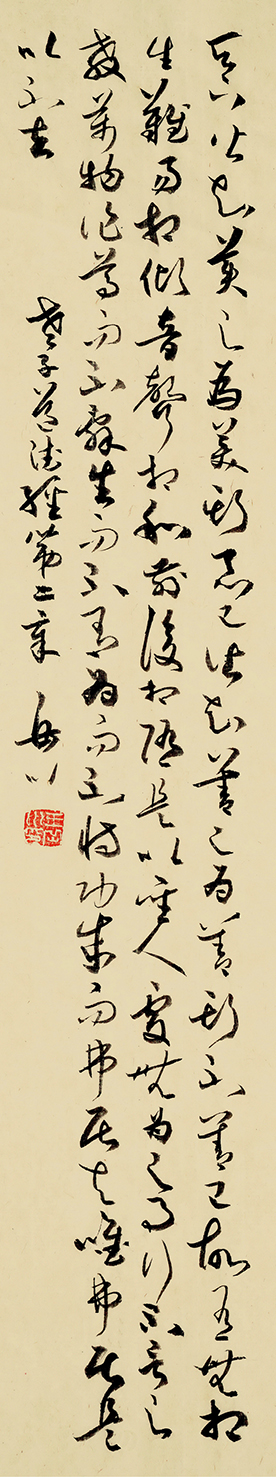 天下皆知美之為美斯惡已皆知善之為善斯不善已故有無相
生難易相傾音聲相和前後相隨是以聖人處無為之事行不言之
教萬物作焉而不辭生而不有為而不恃功成而弗居夫唯弗居是
以不去
老子道德經第二章